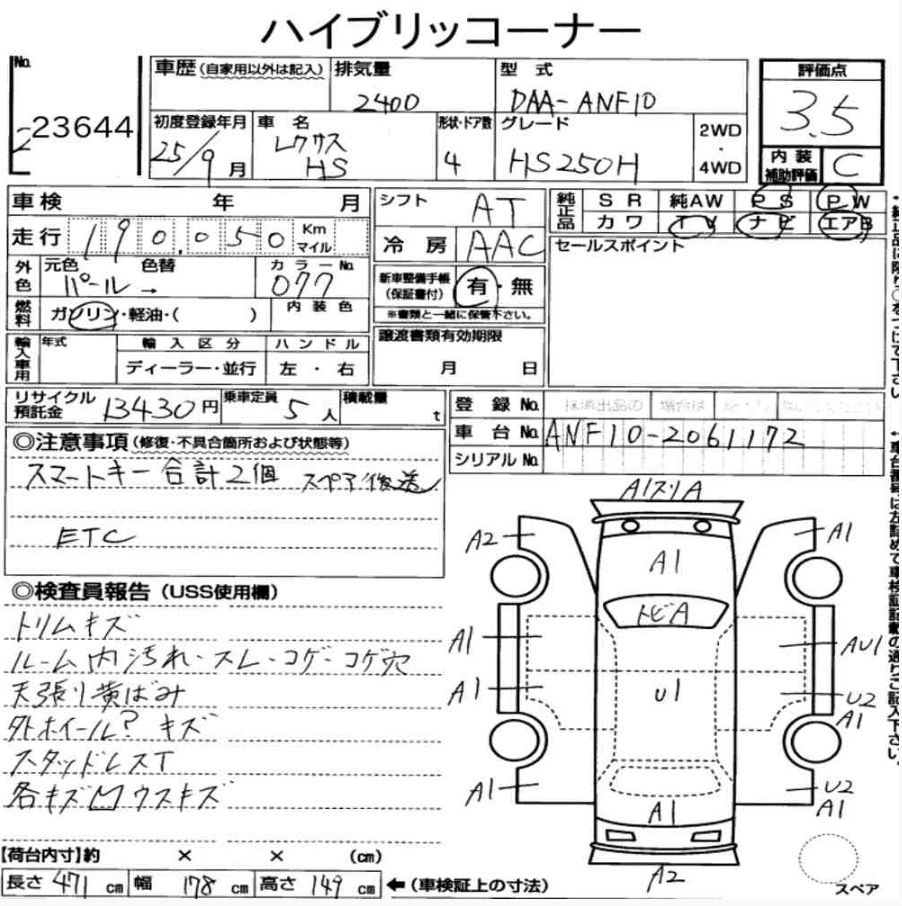 ハイブリッコーナー
No.
23644
車歴(自家用以外は記入)
排気量
2400
型式
DAA-ANF10
評価点
3.5
初度登録年月
25/9月
車名
レクサス
HS
形状・ドア数
4
グレード
HS250H
2WD
・
4WD
内装
補助評価
C
車検 年 月
走行 190,050 Km
マイル
シフト AT
冷房 AAC
純正品
SR 純AW PS PW
カワ TV ナビ エアB
セールスポイント
外色
元色 色替
パール→
カラーNo.
077
燃料
ガソリン・軽油・( )
内装色
新車整備手帳
(保証書付)
有・無
※書類と一緒に保管下さい。
輸入車用
年式
輸入区分
ディーラー・並行
ハンドル
左・右
譲渡書類有効期限
月 日
リサイクル
預託金
13430円
乗車定員 5人
積載量 t
登録No.
車台No. ANF10-2061172
シリアルNo.
◎注意事項(修復・不具合箇所および状態等)
スマートキー合計2個 スペア後送
ETC
◎検査員報告(USS使用欄)
トリムキズ
ルーム内汚れ・スレ・コゲ・コゲ穴
天張り黄ばみ
外ホイール? キズ
スタッドレスT
各キズ凹ウスキズ
A1スリA
A2
A1
A1
トビA
A1
AU1
A1
U1
U2
A1
A1
A1
U2
A1
A2
スペア
【荷台内寸】約 × × (cm)
長さ 471 cm 幅 178 cm 高さ 149 cm ←(車検証上の寸法)